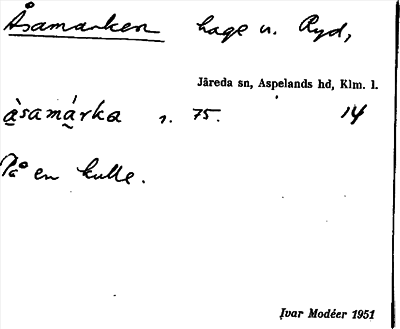 Åsamarken hage u. Ryd,
Järeda sn, Aspelands hd, Klm. l.
å̱̀samá̱rka s. 75. 14
På en kulle.
Ivar Modéer 1951